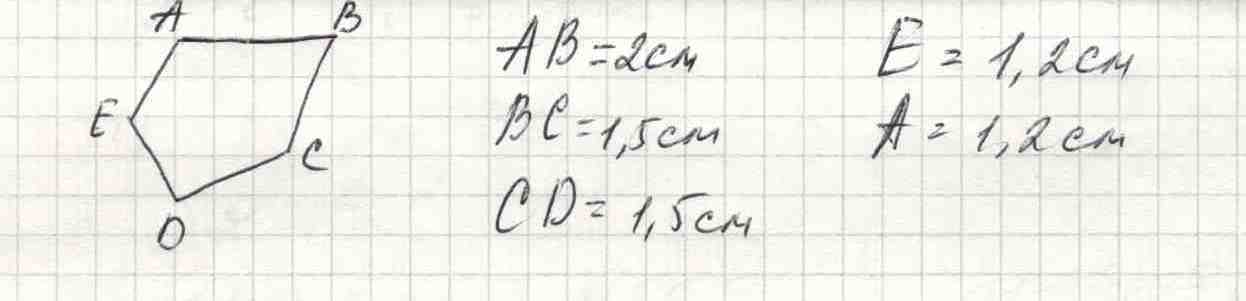 A B
E
C
D
AB=2см
BC=1,5см
CD=1,5см
E=1,2см
A=1,2см